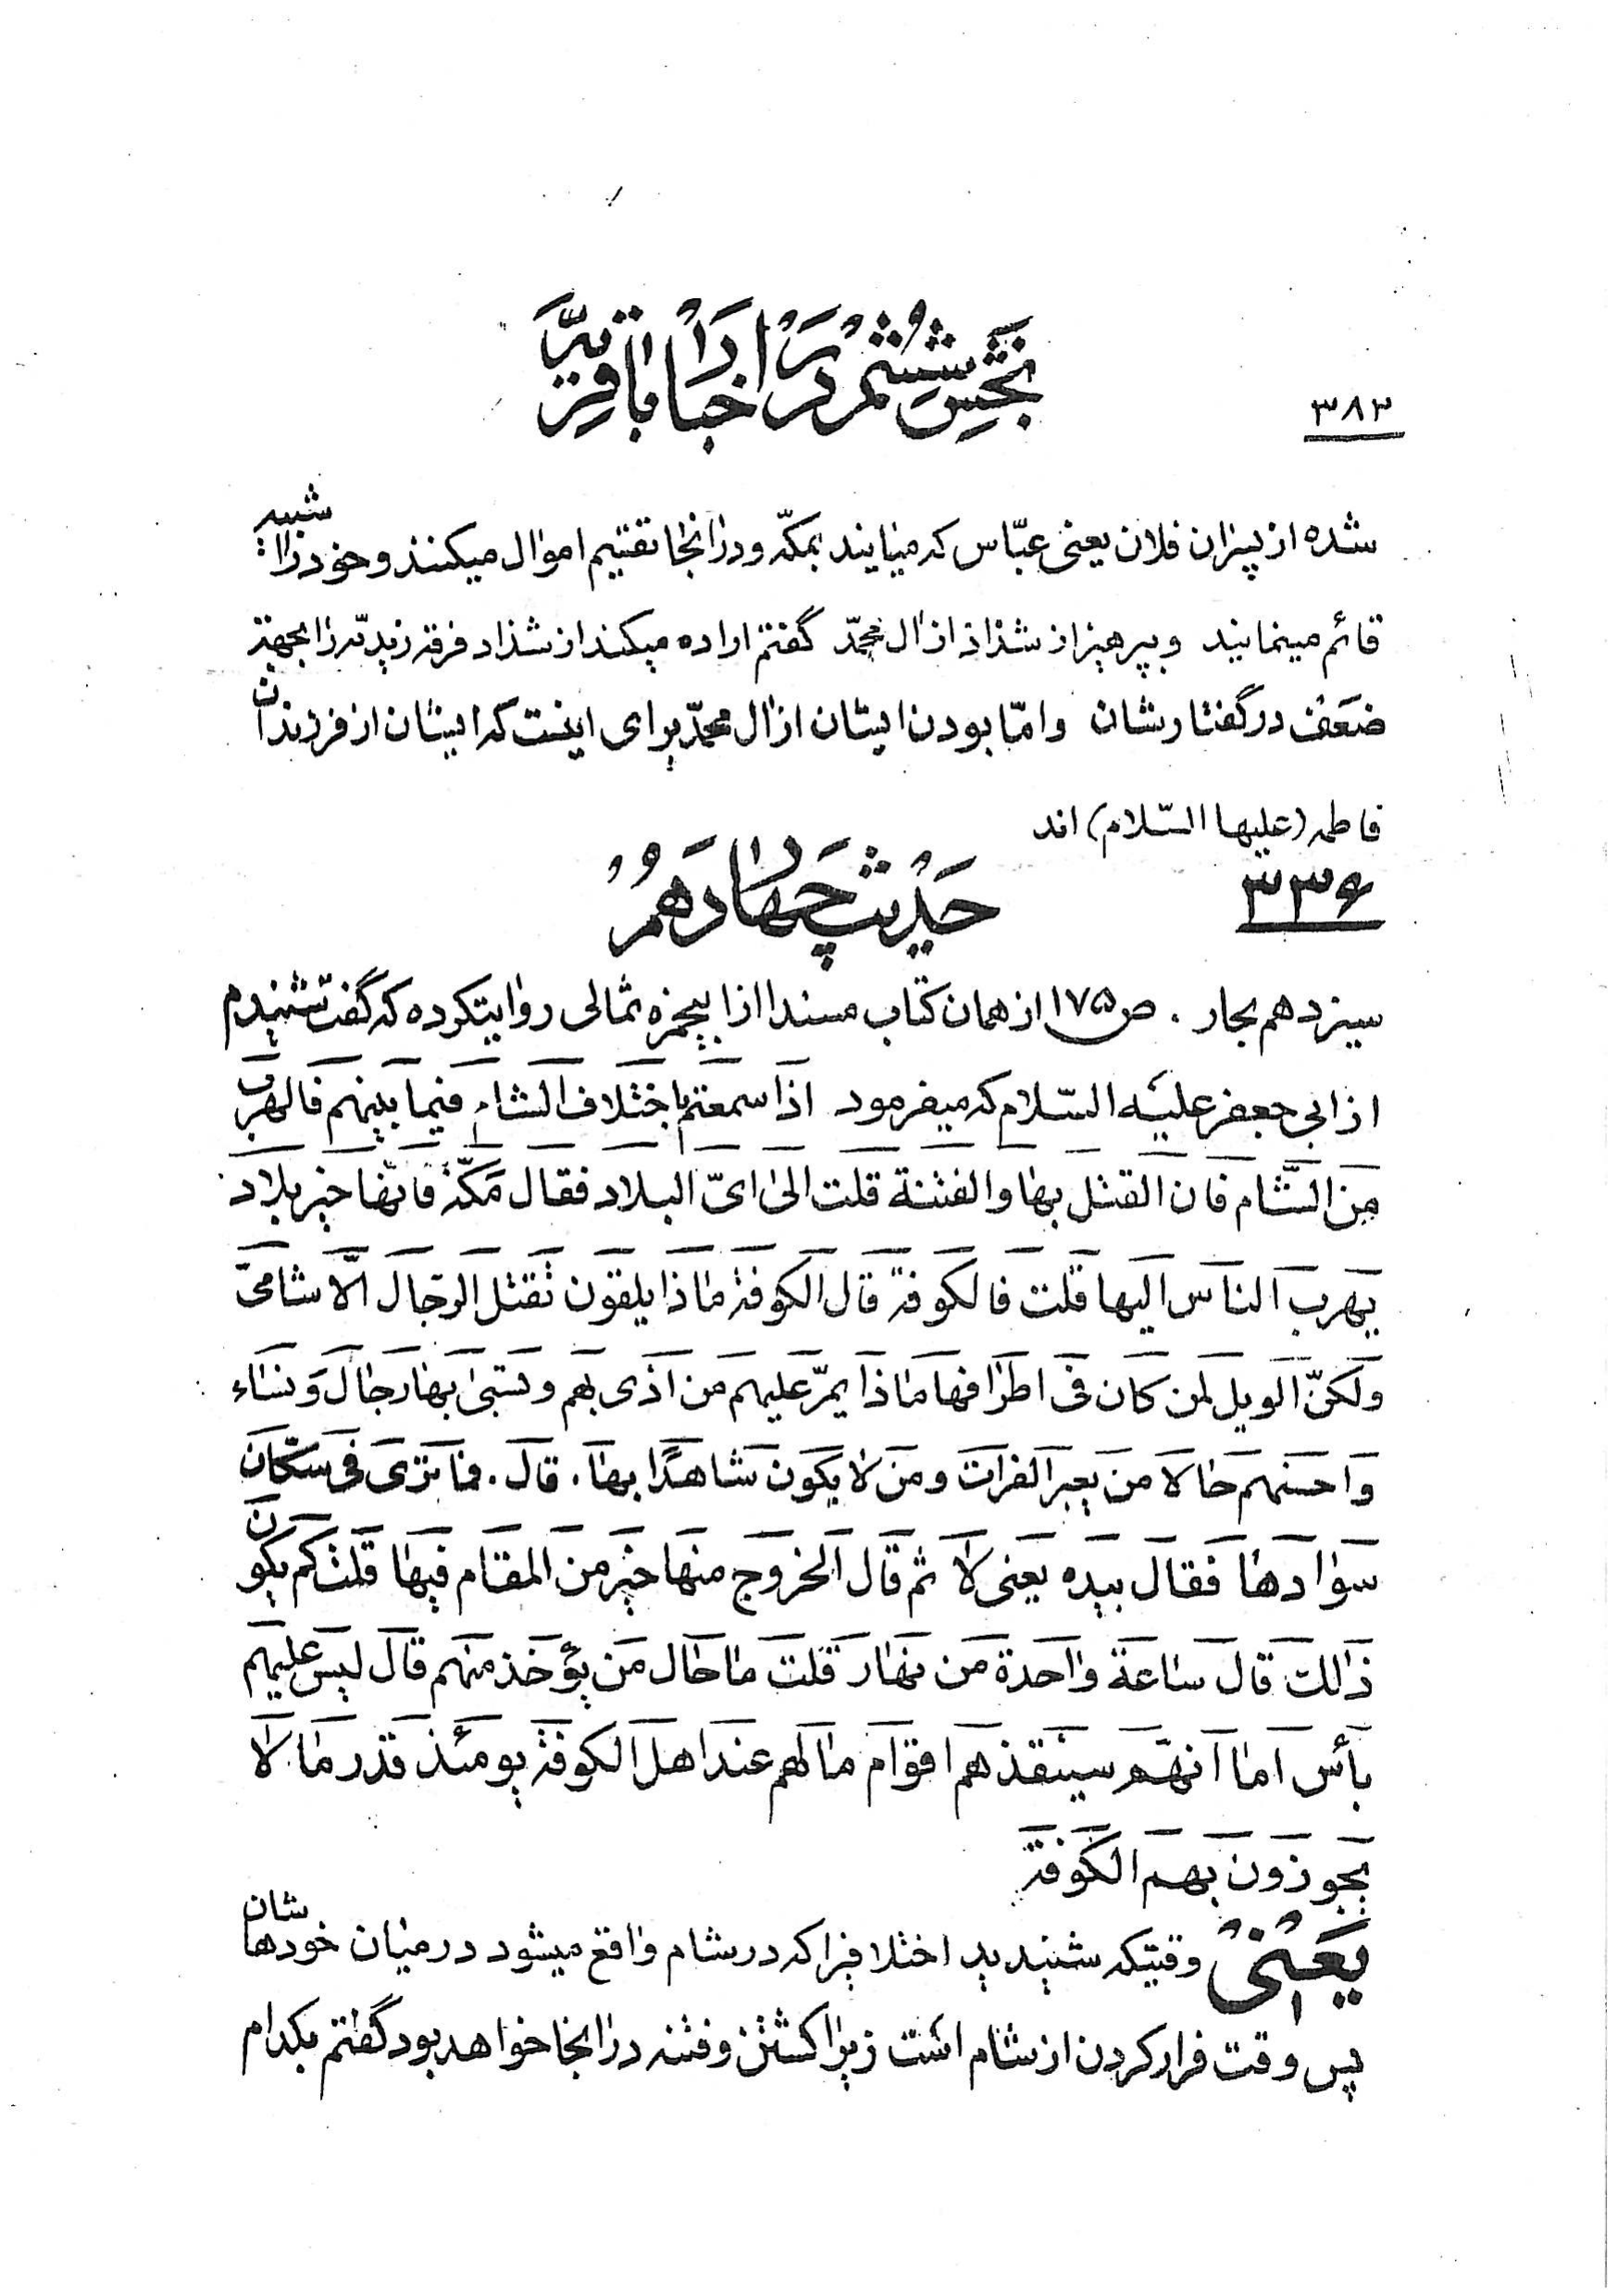 ۳۸۳
بخش ششم در اخبار باقریّه
شده از پسران فلان یعنی عبّاس که میآیند بمکّه و در آنجا تقسیم اموال میکنند و خود را شبیه
قائم مینمایند و بپرهیز از شذاذ از آل محمّد گفتم اراده میکند از شذاد فرقه زیدیّه را بجهة
ضعف در گفتارشان و امّا بودن ایشان از آل محمّد برای اینست که ایشان از فرزندان
فاطمه (علیها السّلام) اند
۳۳۶
حدیث چهاردهم
سیزدهم بحار . ص ۱۷۵ از همان کتاب مسندا از ابیحمزه ثمالی روایتکرده که گفت شنیدم
از ابی جعفر علیه السّلام که میفرمود اذا سمعتم باختلاف الشام فیما بینهم فالهرب
من الشّام فان القتل بها و الفتنة قلت الی ایّ البلاد فقال مکّة فانّها خیر بلاد
یهرب الناس الیها قلت فالکوفة قال الکوفة ماذا یلقون تقتل الرّجال الّا شامیّ
ولکنّ الویل لمن کان فی اطرافها ماذا یمرّ علیهم من اذی بهم و تسبی بها رجال و نساء
و احسنهم حالا من یعبر الفرات و من لا یکون شاهدًا بها . قال . فما تری فی سکّان
سوادها فقال بیده یعنی لا ثم قال الخروج منها خیر من المقام فیها قلت کم یکون
ذالک قال ساعة واحدة من نهار قلت ما حال من یؤخذ منهم قال لیس علیهم
بأس اما انهّم سینقذهم اقوام ما لهم عند اهل الکوفة یومئذ قدر ما لا
یجوزون بهم الکوفة
یعنی وقتیکه شنیدید اختلافیرا که در شام واقع میشود در میان خودهاشان
پس وقت فرار کردن از شام است زیرا کشتن و فتنه در انجا خواهد بود گفتم بکدام